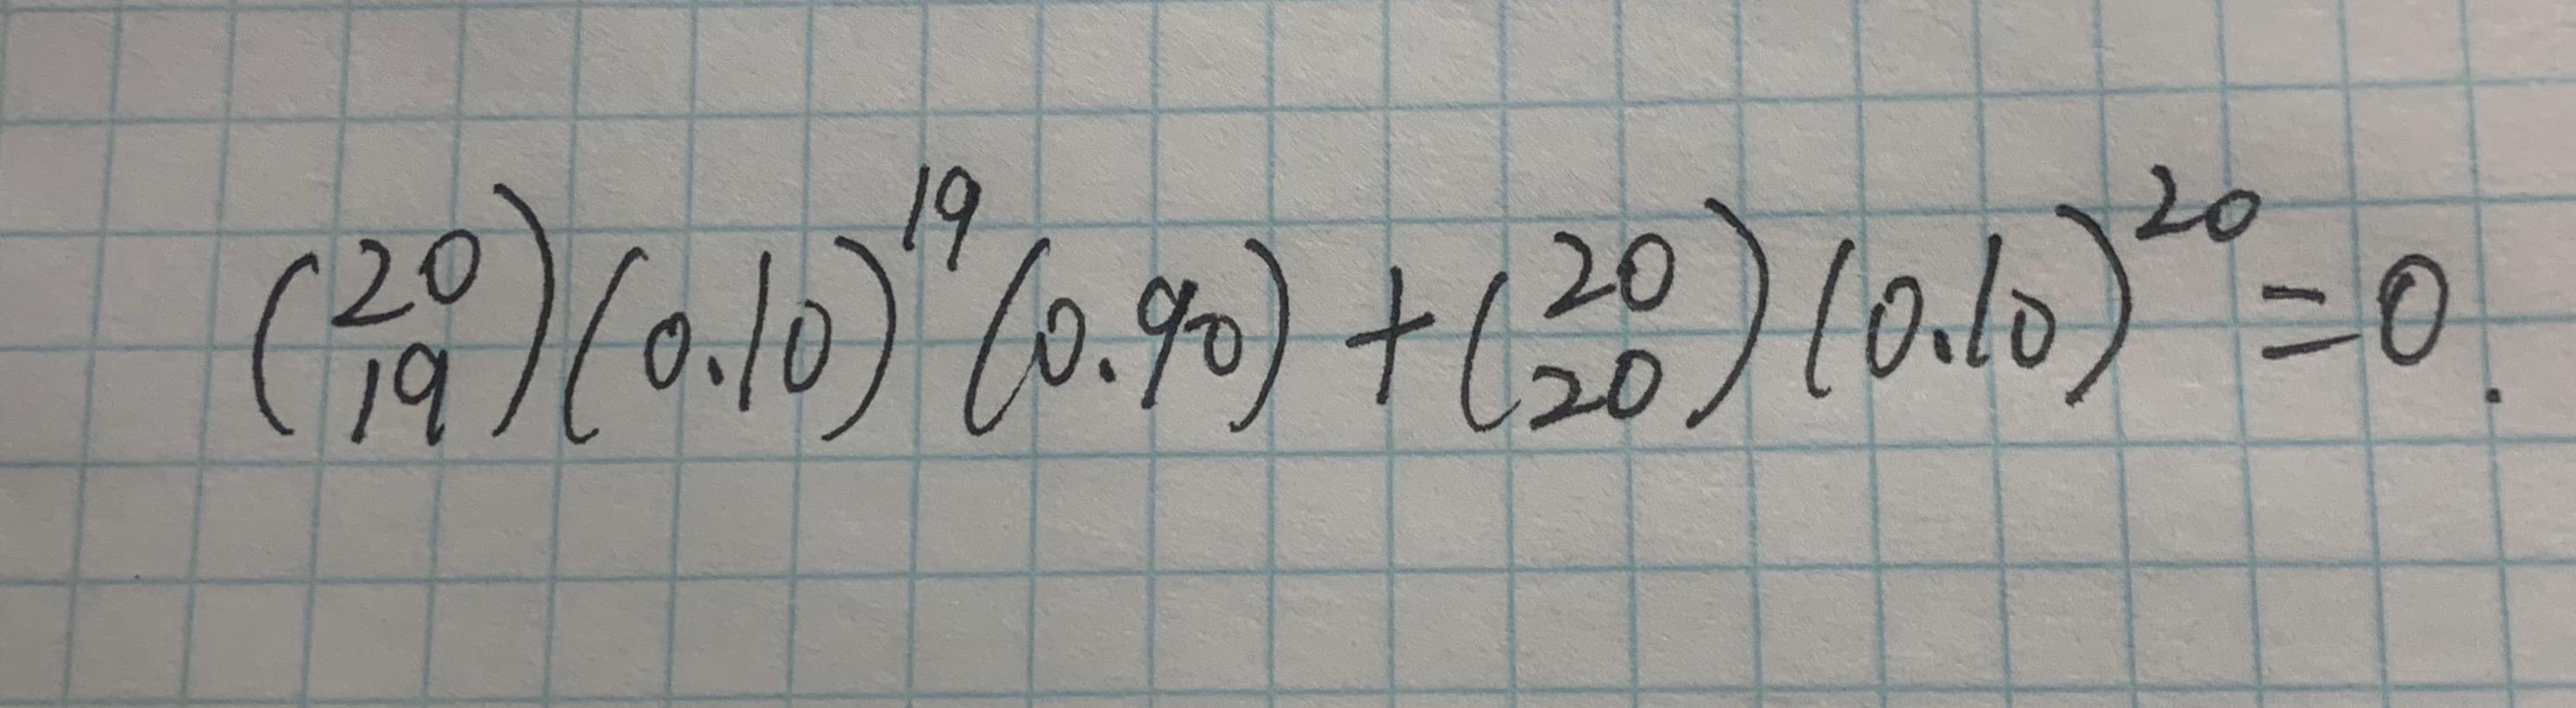 $\binom{20}{19}(0.10)^{19}(0.90)+\binom{20}{20}(0.10)^{20}=0.$